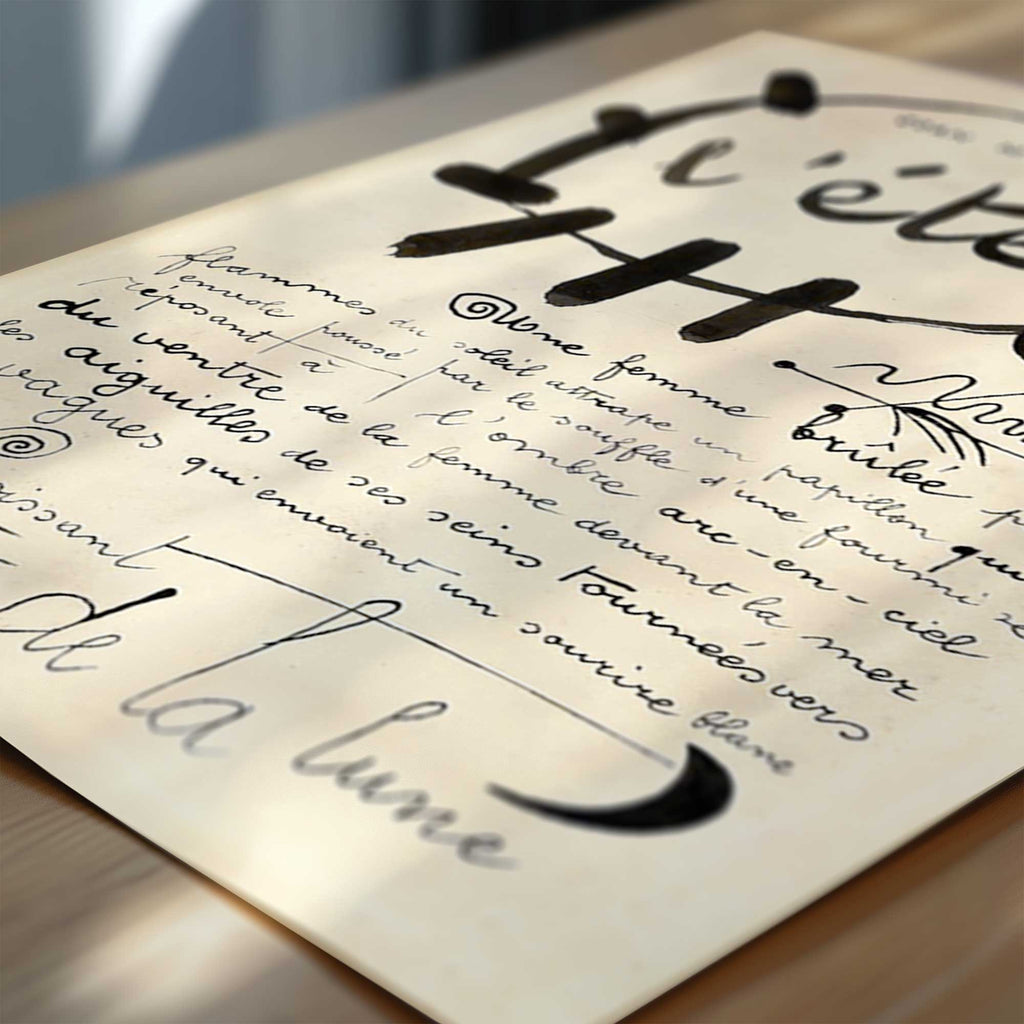 l'éte
Une femme brûlée
flammes du soleil attrape un papillon qui
envole poussé par le souffle d'une fourmi se
réposant à l'ombre arc-en-ciel
du ventre de la femme devant la mer
les aiguilles de ses seins tournées vers
vagues qui envoient un sourire blanc
issant
de la lune